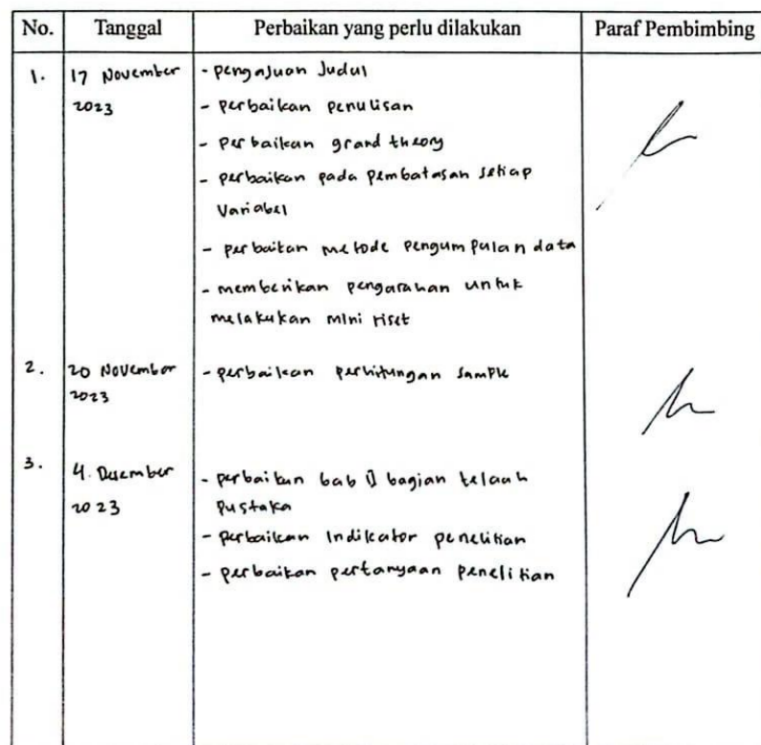 No. Tanggal Perbaikan yang perlu dilakukan Paraf Pembimbing
1. 17 November - pengajuan Judul
2023 - perbaikan penulisan
- perbaikan grand theory
- perbaikan pada pembatasan setiap
Variabel
- perbaikan metode pengumpulan data
- memberikan pengarahan untuk
melakukan mini riset
2. 20 November - perbaikan perhitungan sample
2023
3. 4 Desember - perbaikan bab II bagian telaah
2023 Pustaka
- perbaikan Indikator penelitian
- perbaikan pertanyaan penelitian